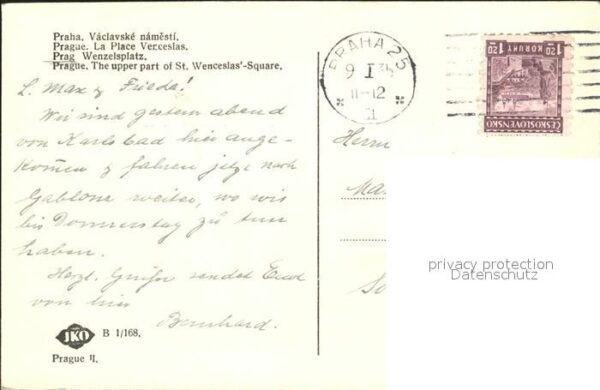 Praha. Václavské náměstí.
Prague. La Place Venceslas.
Prag Wenzelsplatz.
Prague. The upper part of St. Wenceslas'-Square.
L. Max & Frieda!
Wir sind gestern abend
von Karlsbad hier ange-
kommen & fahren jetzt nach
Gablonz weiter, wo wir
bis Donnerstag zu tun
haben.
Herzl. Grüße sendet Euch
von hier
Bernhard.
JKO
B 1/168.
Prague II.
PRAHA 25
9 I 35
11-12
1·20 KORUNY 1·20
ČESKOSLOVENSKO
Herrn
Ma
privacy protection
Datenschutz